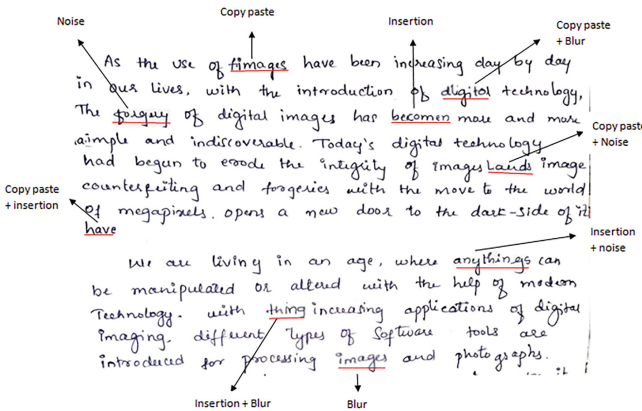 Noise
Copy paste
Insertion
Copy paste
+ Blur
As the use of fimages have been increasing day by day
in our lives, with the introduction of digital technology,
The forgery of digital images has becomen more and more
simple and indiscoverable. Today's digital technology
had begun to erode the integrity of images Lands image
Copy paste
+ Noise
counterfeiting and forgeries with the move to the world
Copy paste
+ insertion
of megapixels. opens a new door to the dark-side of it
have
Insertion
+ noise
We are living in an age, where anythings can
be manipulated or altered with the help of modern
Technology. with thing increasing applications of digital
imaging, different Types of Software tools are
introduced for processing images and photographs.
Insertion + Blur
Blur